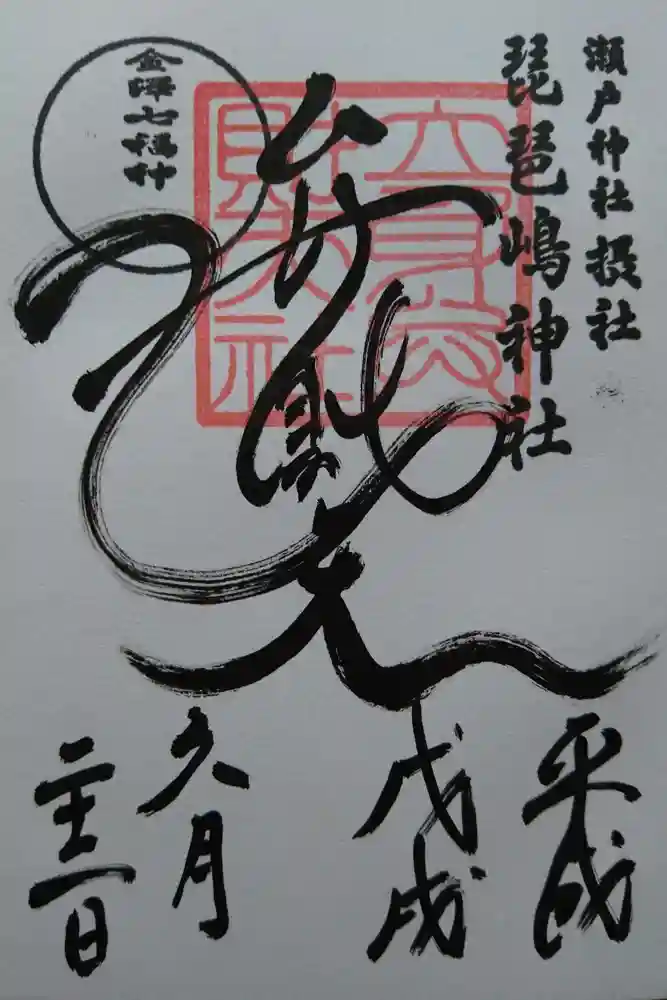 瀬戸神社 摂社
琵琶嶋神社
金澤七福神
立身弁
財天社
弁財天
平成
戊戌
月
日